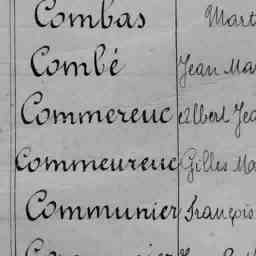 Combas Mart
Combé Jean Ma
Commereuc Albert Jea
Commeureuc Gilles Ma
Communier François